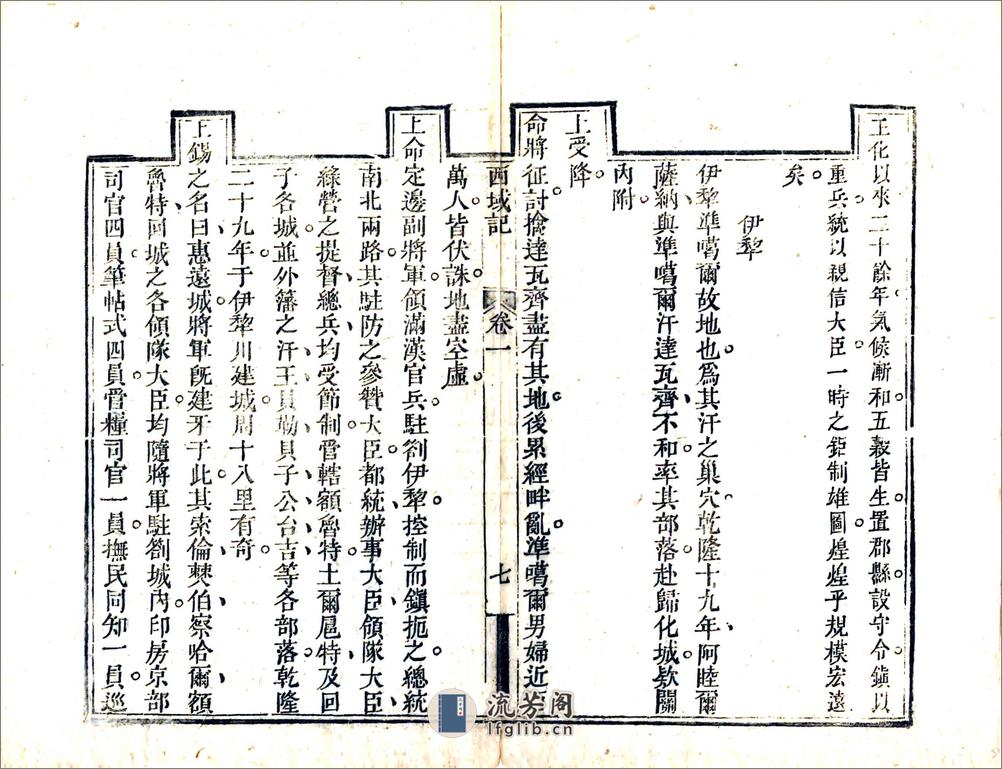 王化以來二十餘年氣候漸和五穀皆生置郡縣設守令鎮以
重兵統以親信大臣一時之鉅制雄圖煌煌乎規模宏遠
矣
伊犂
伊犂準噶爾故地也爲其汗之巢穴乾隆十九年阿睦爾
薩納與準噶爾汗達瓦齊不和率其部落赴歸化城欵關
內附
上受降
命將征討擒達瓦齊盡有其地後累經畔亂準噶爾男婦近
西域記
卷一
七
萬人皆伏誅地盡空虛
上命定邊副將軍領滿漢官兵駐劄伊犂控制而鎮扼之總統
南北兩路其駐防之參贊大臣都統辦事大臣領隊大臣
綠營之提督總兵均受節制管轄額魯特土爾扈特及回
子各城並外籓之汗王貝勒貝子公台吉等各部落乾隆
二十九年于伊犂川建城周十八里有奇
上錫之名曰惠遠城將軍旣建牙于此其索倫僰伯察哈爾額
魯特回城之各領隊大臣均隨將軍駐劄城內印房京部
司官四員筆帖式四員管糧司官一員撫民同知一員巡
流芳阁
lfglib.cn